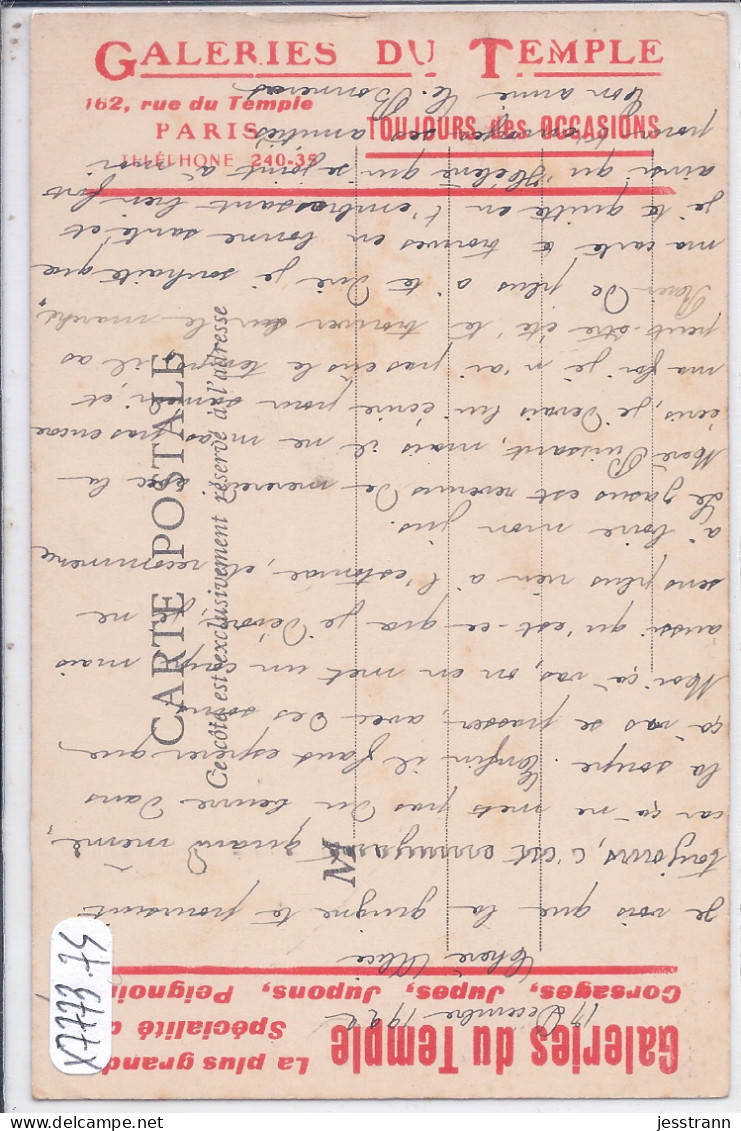 GALERIES DU TEMPLE
162, rue du Temple
PARIS
TÉLÉPHONE 240-35
TOUJOURS des OCCASIONS
CARTE POSTALE
Ce côté est exclusivement réservé à l'adresse
M
Galeries du Temple
La plus grand
Spécialité d
Corsages, Jupes, Jupons, Peignoi
Décembre 1922
Chère Alice
Je vois que la guigne te poursuit
toujours, c'est ennuyant quand même,
car ça ne mets pas du beurre dans
la soupe. Enfin il faut espérer que
ça vas se passer, avec des soins
Moi ça vas, on en met un coup mais
aussi qu'est-ce que je dévore, je ne
sens plus rien à l'estomac, et recommence
à boire mon jus.
Le gasus est revenus de mercredi avec la
Mère Puissant, mais il ne m'as pas encore
écris, je devais lui écrire pour samedi et,
ma foi je n'ai pas eus le temps, s'il as
peut-être été te trouver sur le marché,
Rien de plus à te dire je souhaite que
ma carte te trouves en bonne santé et
je te quitte en t'embrassant bien fort
ainsi qu'Hélène qui se joint à moi
pour ses amitiés
Ton amie
jesstrann